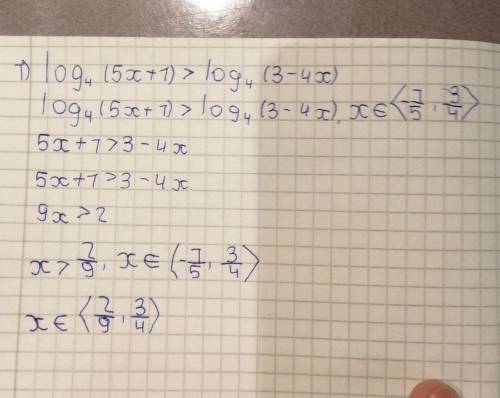 1) log₄(5x+1)>log₄(3-4x)
log₄(5x+1)>log₄(3-4x), x∈⟨-1/5, 3/4⟩
5x+1>3-4x
5x+1>3-4x
9x>2
x>2/9, x∈⟨-1/5, 3/4⟩
x∈⟨2/9, 3/4⟩